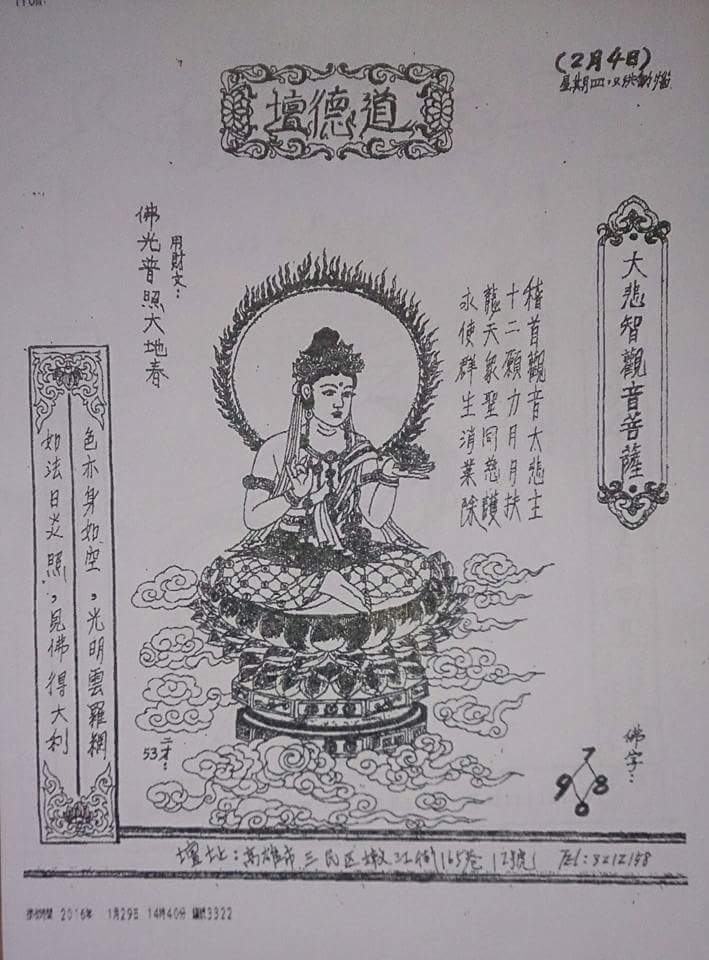 (2月4日)
星期四
道德壇
大悲智觀音菩薩
稽首觀音大悲主
十二願力月月扶
龍天眾聖同慈護
永使群生消業除
用財文:
佛光普照大地春
色亦身如空,光明雲羅網
如法日炎照,見佛得大利
二才:
53
佛字:
7
9 8
壇址:高雄市三民区 165巷12號 Tel:3212158
2016年 1月29日 14時40分 3322